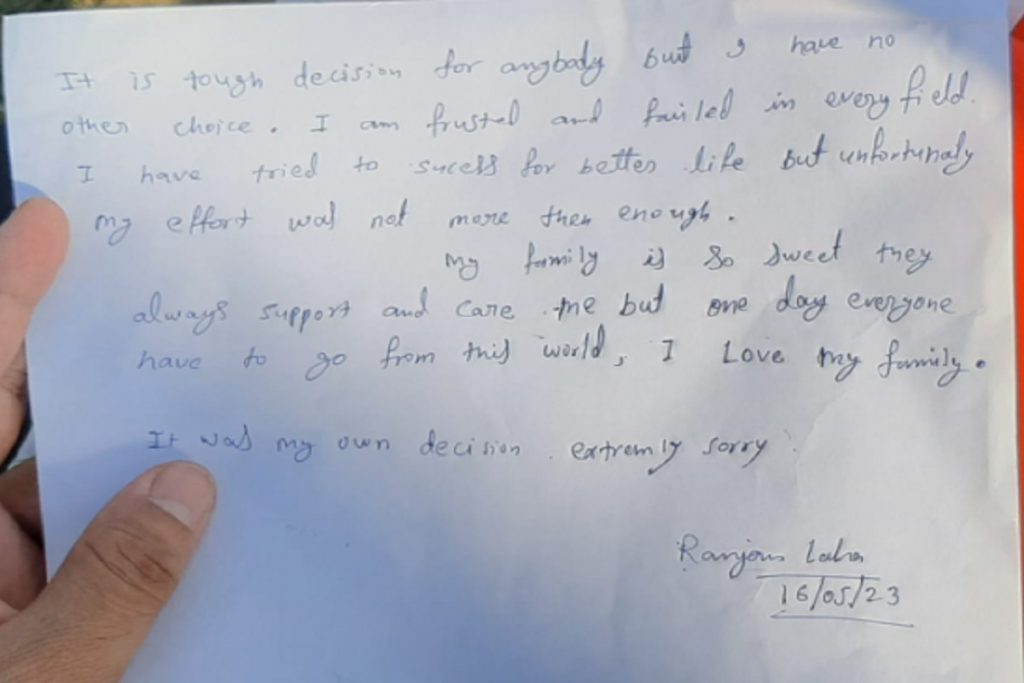 It is tough decision for anybody but I have no
other choice. I am frusted and failed in every field.
I have tried to sucess for better life but unfortunaly
my effort was not more then enough.
My family is so sweet they
always support and care me but one day everyone
have to go from this world, I Love my family.
It was my own decision. extremly sorry
Ranjan Laha
16/05/23